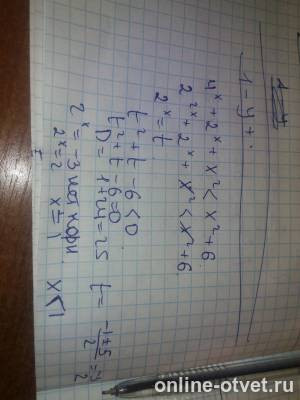 1 - y + .
4ˣ + 2ˣ + x² < x² + 6
2²ˣ + 2ˣ + x² < x² + 6
2ˣ = t
t² + t - 6 < 0
t² + t - 6 = 0
D = 1 + 24 = 25 t = -1±5/2 = 2
2ˣ = -3
2ˣ = 2 x = 1
x < 1
online-otvet.ru